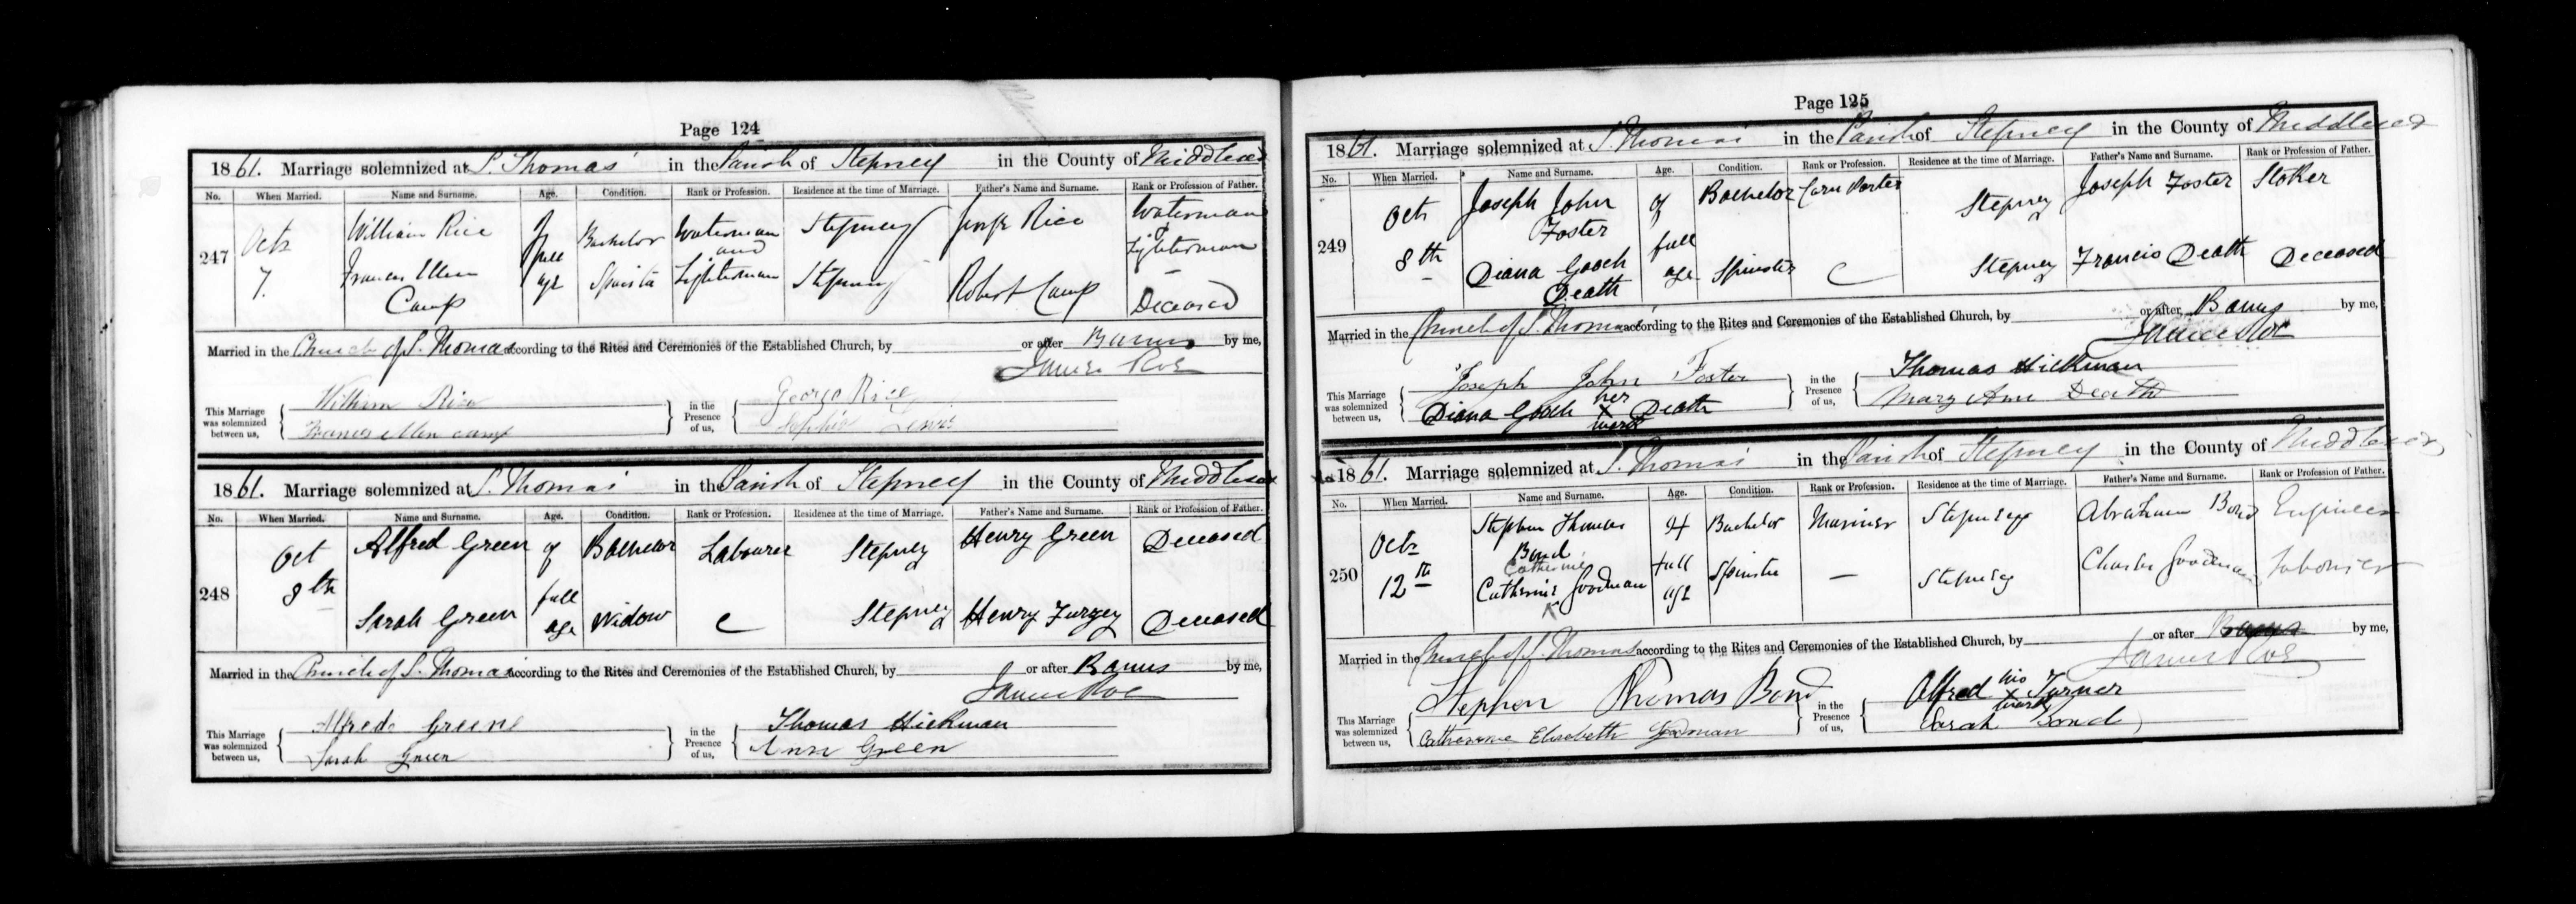 Page 124
1861. Marriage solemnized at S. Thomas' in the Parish of Stepney in the County of Middlesex
No. When Married. Name and Surname. Age. Condition. Rank or Profession. Residence at the time of Marriage. Father's Name and Surname. Rank or Profession of Father.
247 Octr 7. William Rice of full age Bachelor Waterman and Lighterman Stepney George Rice Waterman & Lighterman
Frances Ellen Camp Spinster Stepney Robert Camp Deceased
Married in the Church of S. Thomas according to the Rites and Ceremonies of the Established Church, by or after Banns by me,
James Roe
This Marriage was solemnized between us, William Rice in the Presence of us, George Rice
Frances Ellen Camp Sophia Lewis
1861. Marriage solemnized at S. Thomas' in the Parish of Stepney in the County of Middlesex
No. When Married. Name and Surname. Age. Condition. Rank or Profession. Residence at the time of Marriage. Father's Name and Surname. Rank or Profession of Father.
248 Oct 8th Alfred Green of full age Bachelor Labourer Stepney Henry Green Deceased
Sarah Green Widow Stepney Henry Furgey Deceased
Married in the Church of S. Thomas according to the Rites and Ceremonies of the Established Church, by or after Banns by me,
James Roe
This Marriage was solemnized between us, Alfred Greene in the Presence of us, Thomas Hickman
Sarah Green Ann Green
Page 125
1861. Marriage solemnized at S. Thomas' in the Parish of Stepney in the County of Middlesex
No. When Married. Name and Surname. Age. Condition. Rank or Profession. Residence at the time of Marriage. Father's Name and Surname. Rank or Profession of Father.
249 Octr 8th Joseph John Foster of full age Bachelor Corn Porter Stepney Joseph Foster Stoker
Diana Gooch Death Spinster Stepney Francis Death Deceased
Married in the Church of S. Thomas according to the Rites and Ceremonies of the Established Church, by or after Banns by me,
James Roe
This Marriage was solemnized between us, Joseph John Foster in the Presence of us, Thomas Hickman
Diana Gooch her X mark Death Mary Ann Death
1861. Marriage solemnized at S. Thomas' in the Parish of Stepney in the County of Middlesex
No. When Married. Name and Surname. Age. Condition. Rank or Profession. Residence at the time of Marriage. Father's Name and Surname. Rank or Profession of Father.
250 Octr 12th Stephen Thomas Bond of full age Bachelor Mariner Stepney Abraham Bond Engineer
Catherine
Catherine Goodman Spinster — Stepney Charles Goodman Labourer
Married in the Church of S. Thomas according to the Rites and Ceremonies of the Established Church, by or after Banns by me,
James Roe
This Marriage was solemnized between us, Stephen Thomas Bond in the Presence of us, Alfred his X mark Turner
Catherine Elisebeth Goodman Sarah Bond